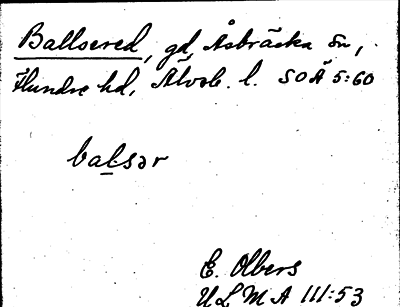 Ballsered, gd, Åsbräcka sn,
Flundre hd, Älvsb. l. SOÄ 5:60
balsər
E. Olbers
ULMA 111:53